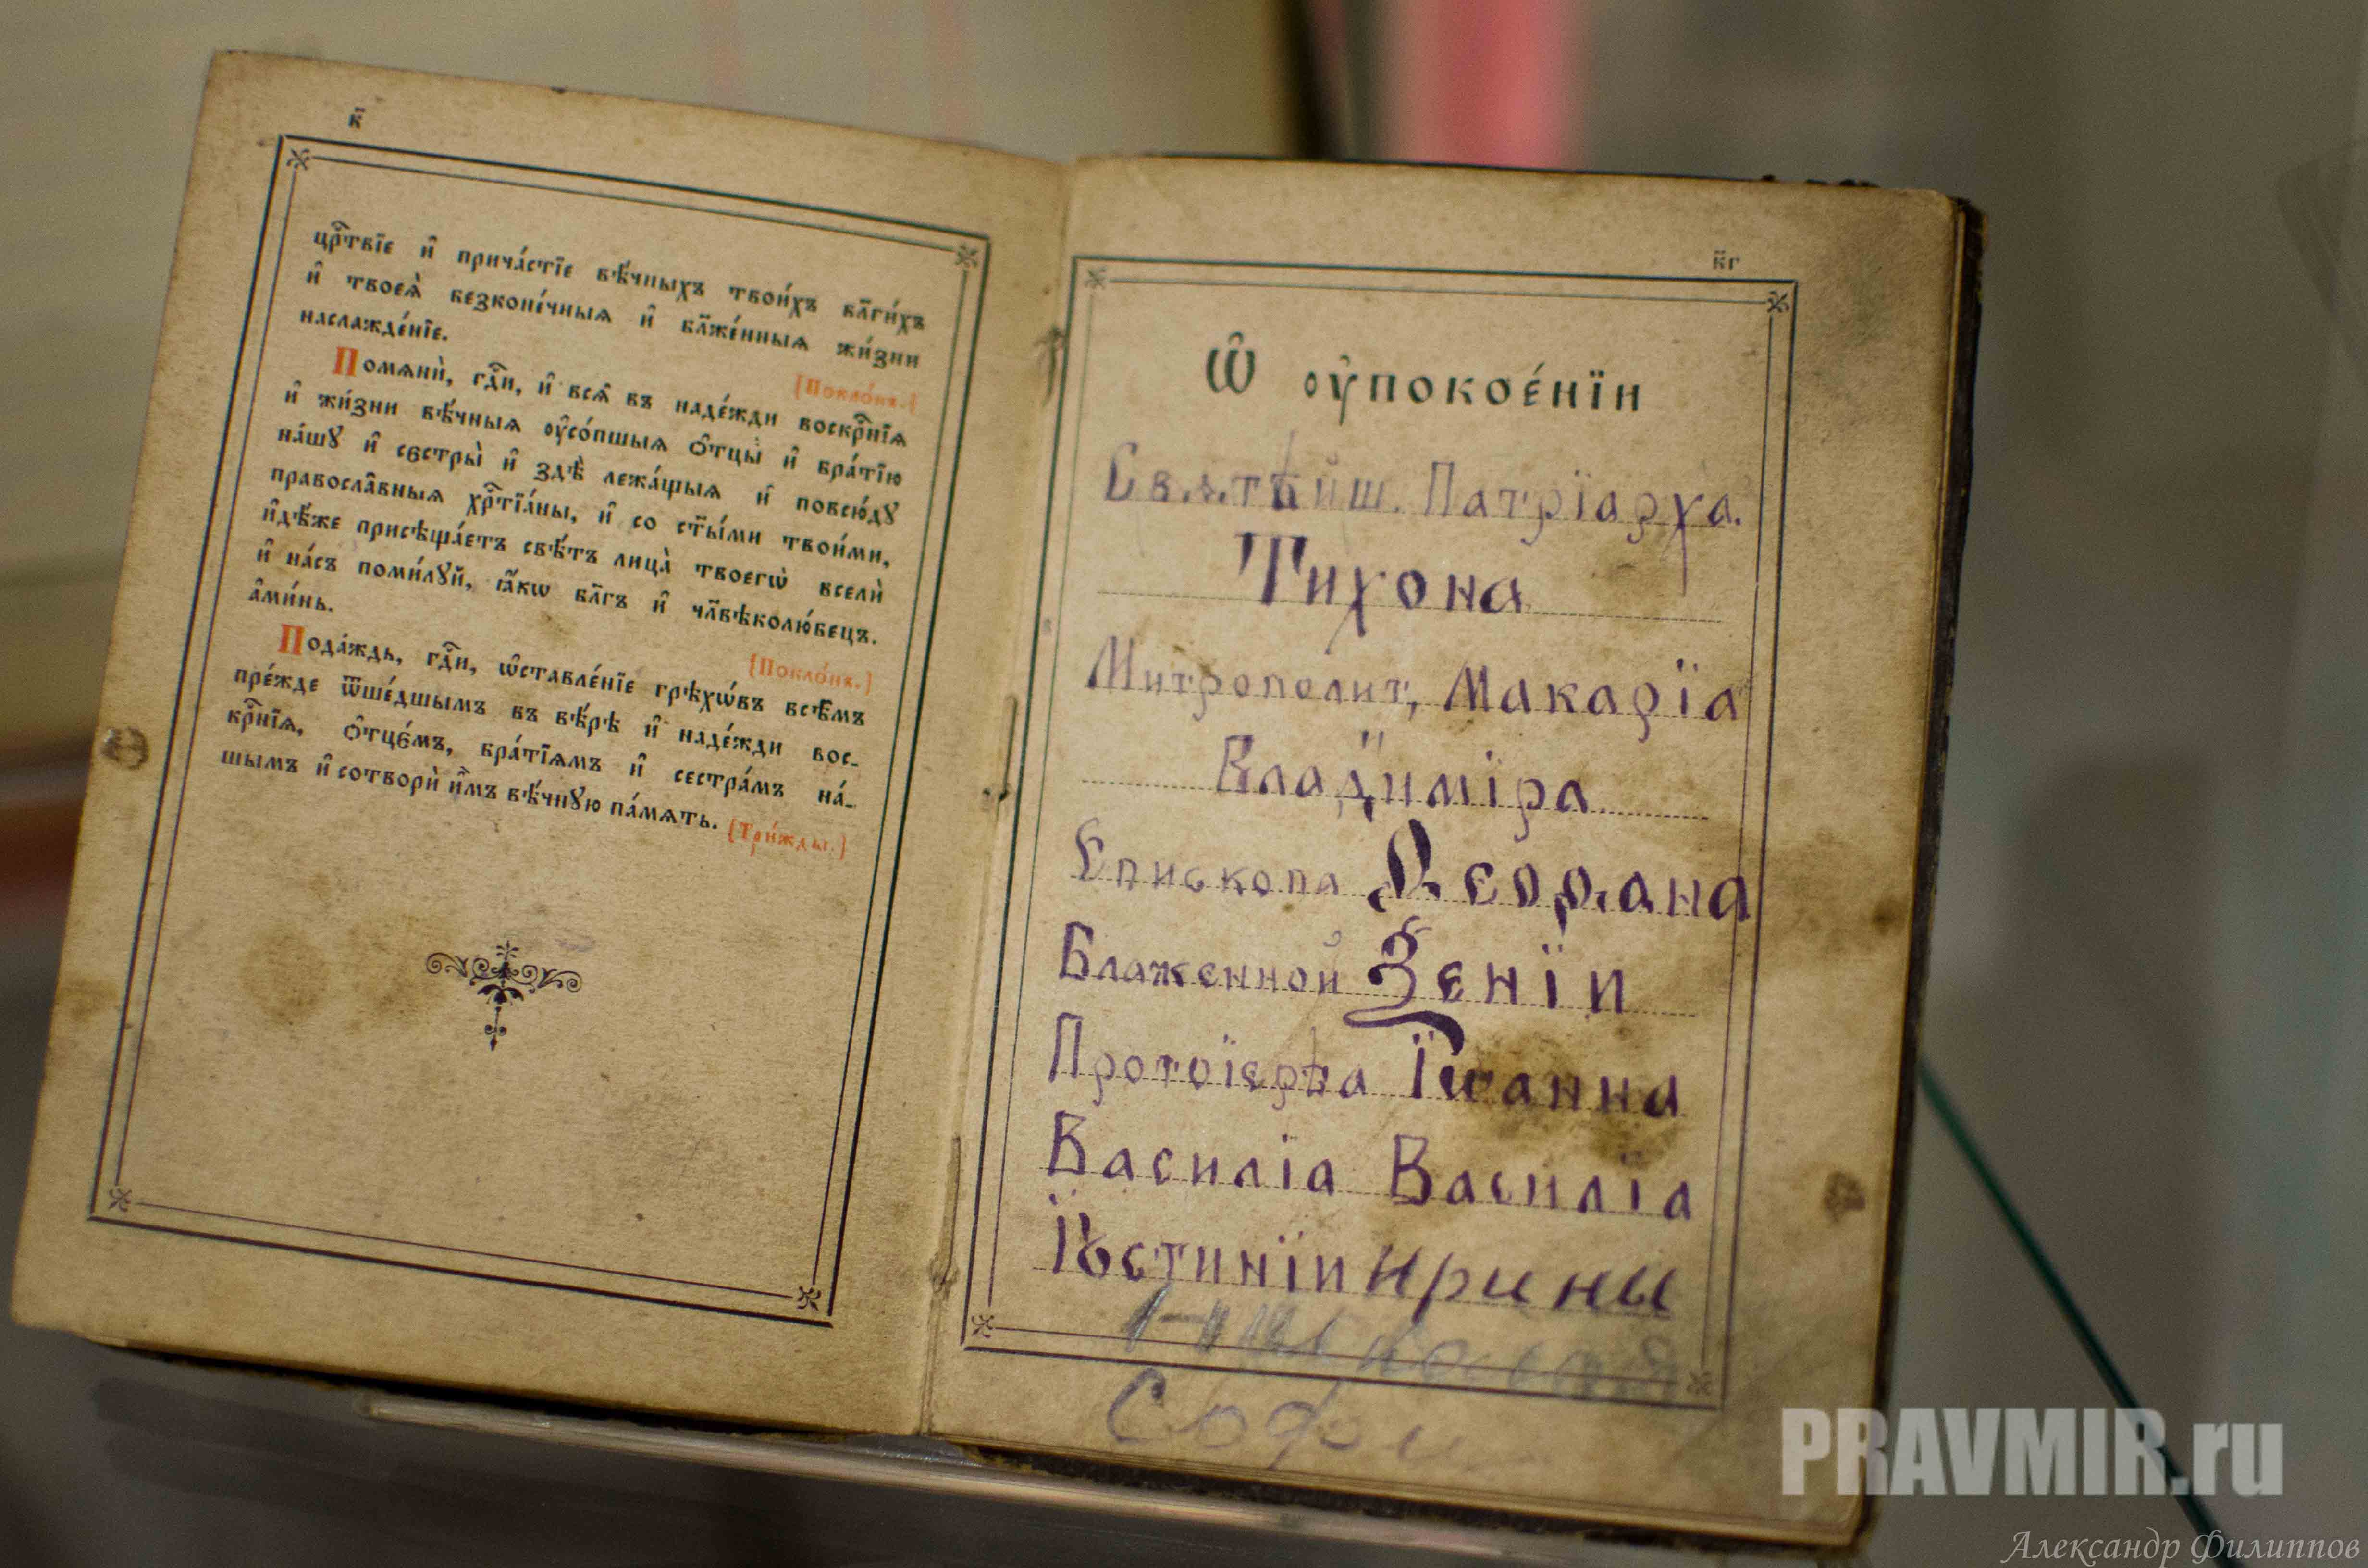 к҃
црⷭ҇твїе и҆ прича́стїе вѣ́чныхъ твои́хъ бл҃ги́хъ
и҆ твоеѧ̀ безконе́чныѧ и҆ бл҃же́нныѧ жи́зни
наслажде́нїе.
[Покло́нъ.]
Помѧнѝ, гдⷭ҇и, и҆ всѧ̑ въ наде́жди воскрⷭ҇нїѧ
и҆ жи́зни вѣ́чныѧ оу҆со́пшыѧ ѻ҆тцы̀ и҆ бра́тїю
на́шꙋ и҆ сєстры̀ и҆ здѣ̀ лежа́щыѧ и҆ повсю́дꙋ
правосла̑вныѧ хрⷭ҇тїа́ны, и҆ со ст҃ы́ми твои́ми,
и҆дѣ́же присѣща́етъ свѣ́тъ лица̀ твоегѡ̀ вселѝ
и҆ на́съ поми́лꙋй, ꙗ҆́кѡ бл҃гъ и҆ чл҃вѣколю́бецъ.
а҆ми́нь.
[Покло́нъ.]
Пода́ждь, гдⷭ҇и, ѡ҆ставле́нїе грѣхѡ́въ всѣ̑мъ
пре́жде ѿше́дшымъ въ вѣ́рѣ и҆ наде́жди вос-
крⷭ҇нїѧ, ѻ҆тцє́мъ, бра́тїѧмъ и҆ сестра́мъ на́-
шымъ и҆ сотворѝ и҆̀мъ вѣ́чнꙋю па́мѧть.
[Три́жды.]
к҃г
Ѡ҆ оу҆покое́нїи
Свѧтѣйш. Патрїарха.
Тихона
Митрополит, Макарїа
Владиміра
Епископа
Блаженной Ѯенїи
Протоїерѣа Їѡанна
Василіа Василїа
Їꙋстинїи Ирины
Софи
PRAVMIR.ru
Александр Филиппов